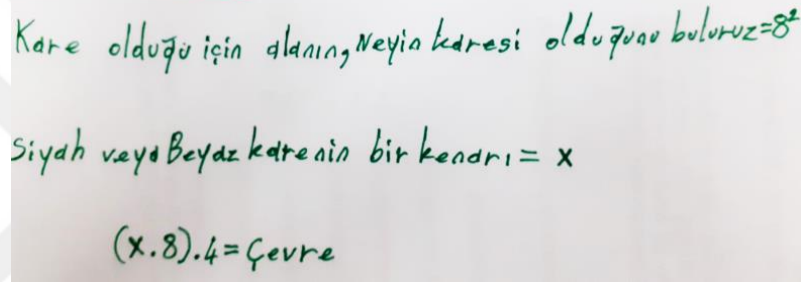 Kare olduğu için alanın, Neyin karesi olduğunu buluruz=8²
Siyah veya Beyaz karenin bir kenarı = x
(x.8).4=Çevre